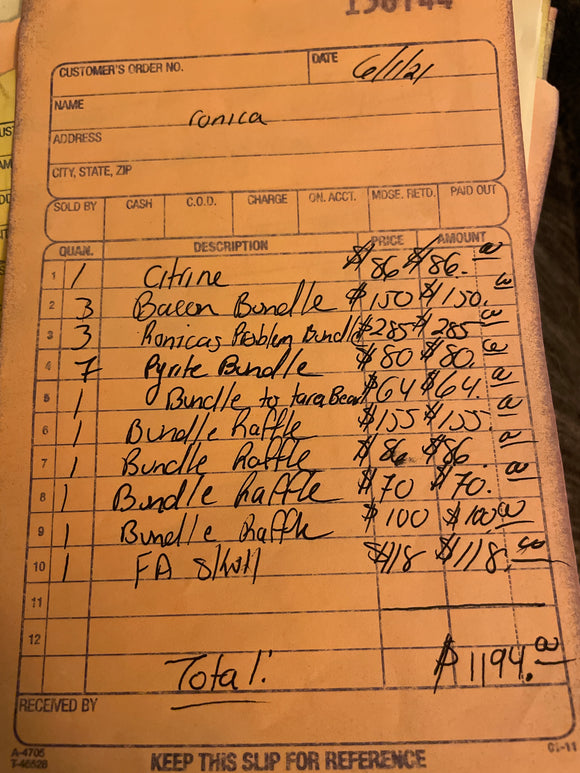 CUSTOMER'S ORDER NO. DATE 6/1/21
NAME ronica
ADDRESS
CITY, STATE, ZIP
SOLD BY CASH C.O.D. CHARGE ON. ACCT. MDSE. RETD. PAID OUT
QUAN. DESCRIPTION PRICE AMOUNT
1 1 Citrine $86 $86.00
2 3 Bacon Bundle $150 $150.00
3 3 Ronicas Problem Bundle $285 $285.00
4 7 Pyrite Bundle $80 $80.00
5 1 Bundle to tara Bear $64 $64.00
6 1 Bundle Raffle $155 $155.00
7 1 Bundle Raffle $86 $86.00
8 1 Bundle Raffle $70 $70.00
9 1 Bundle Raffle $100 $100.00
10 1 FA Skull $118 $118.00
11
12
Total: $1194.00
RECEIVED BY
A-4705
T-46528
KEEP THIS SLIP FOR REFERENCE
01-11